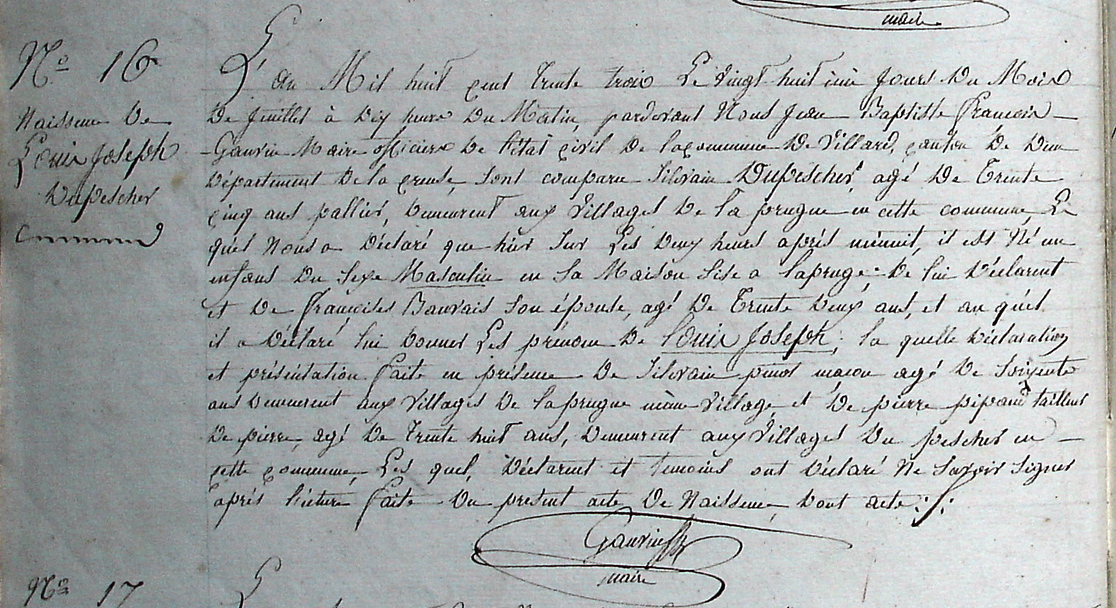 maire
N.o 16
Naissence De
Louis Joseph
Dupescher
L'an Mil huit cent Trente trois Le vingt huit iem Jours Du Mois
De Juillet à Dix heure Du Matin, pardevant Nous Jean Baptiste Francois
Gauvin Maire officier De l'état civil De la commune De Villard, canton De Dun
Département De la creuse, Sont comparu Silvain Dupescher, agé De Trente
cinq ans pallier, Demeurent aux Villages De la prugne en cette commune, Le
quel Nous a Déclaré que hier Sur Les Deux heures après minuit, il est Né un
enfans Du Sexe Masculin en sa Maison Sise a laprugne De lui Déclarent
et De Françoises Bauvais Son épouse, agé De Trente Deux ans, et au quel
il a Déclaré lui Donner Les prénom De Louis Joseph; la quelle Déclaration
et présentation faite en présence De Silvain pinot macon agé De Soixente
ans Demeurent aux Villages De laprugne même Village et De pierre pipaud tailleur
De pierre, agé De Trente huit ans, Demeurent aux Villages Du pescher en
cette commune, Les quel, Déclarent et temoins ont Déclaré Ne Savoir Signer
après lecture faite Du present acte De Naissence, Dont acte ./.
Gauvin
maire
N.o 17
L